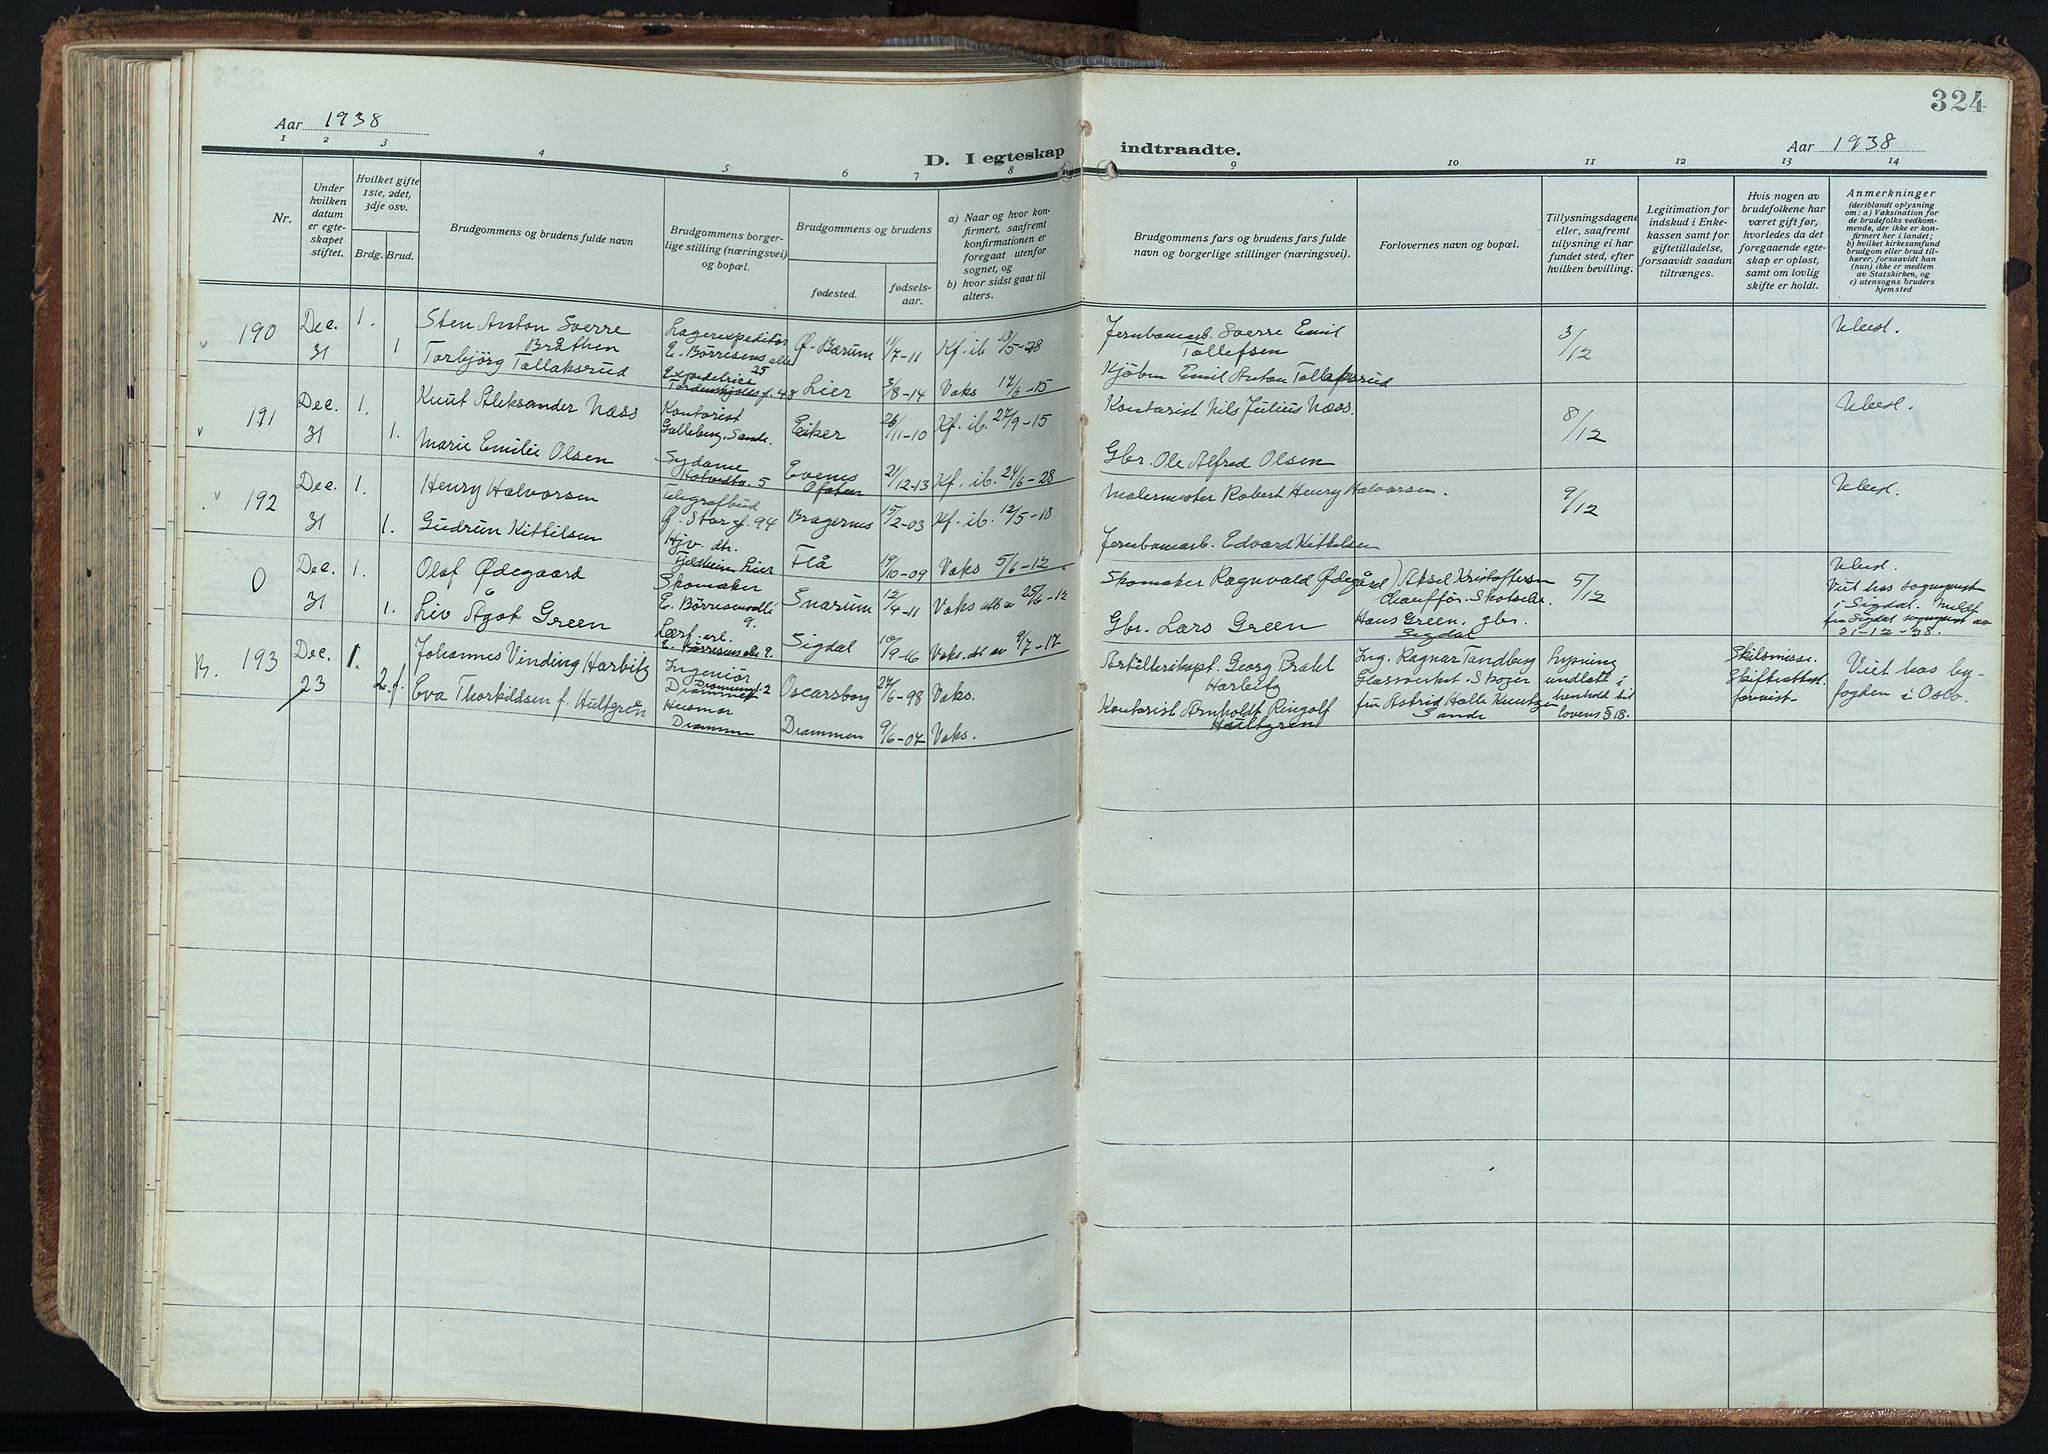 324
Aar 1938
D. I egteskap
indtraadte.
Aar 1938
1 2 3 4 5 6 7 8 9 10 11 12 13 14
Nr.
Under
hvilken
datum
er egte-
skapet
stiftet.
Hvilket gifte
1ste, 2det,
3dje osv.
Brdg. Brud.
Brudgommens og brudens fulde navn
Brudgommens borger-
lige stilling (næringsvei)
og bopæl.
Brudgommens og brudens
fødested.
fødsels-
aar.
a) Naar og hvor kon-
firmert, saafremt
konfirmationen er
foregaat utenfor
sognet, og
b) hvor sidst gaat til
alters.
Brudgommens fars og brudens fars fulde
navn og borgerlige stillinger (næringsvei).
Forlovernes navn og bopæl.
Tillysningsdagene
eller, saafremt
tillysning ei har
fundet sted, efter
hvilken bevilling.
Legitimation for
indskud i Enke-
kassen samt for
giftetilladelse,
forsaavidt saadan
tiltrænges.
Hvis nogen av
brudefolkene har
været gift før,
hvorledes da det
foregaaende egte-
skap er opløst,
samt om lovlig
skifte er holdt.
Anmerkninger
(deriblandt oplysning
om: a) Vaksination for
de brudefolks vedkom-
mende, der ikke er kon-
firmert her i landet;
b) hvilket kirkesamfund
brudgom eller brud til-
hører, forsaavidt han
(hun) ikke er medlem
av Statskirken, og
c) utensogns bruders
hjemsted
190 Dec. 31 1. Sten Anton Sverre Bråthen Lagerexpeditør E. Børresens alle 25 Ø. Bærum 11/7-11 Kf. ib. 13/5-28 Jernbanearb. Sverre Emil Tollefsen 3/12 Ubest.
1 Torbjörg Tollaksrud Expeditrice Tordenskjolds g. 48 Lier 3/8-14 Vaks 17/6-15 Kjøbm Emil Anton Tollaksrud
191 Dec. 31 1. Knut Aleksander Næss Kontorist Galleberg, Sande. Eiker 26/11-10 Kf. ib. 27/9-15 Kontorist Nils Julius Næss. 8/12 Ubest.
1. Marie Emilie Olsen Sydame 5 Evenes Ofoten 21/12-13 Kf. ib. 24/6-28 Gbr. Ole Alfred Olsen
192 Dec. 31 1. Henry Halvorsen Telegrafbud Ø. Storg. 94 Bragernes 15/2-03 Kf. ib. 12/5-18 Malermester Robert Henry Halvorsen. 9/12 Ubest.
1. Gudrun Kittilsen Hjv. dtr. Fjeldheim Lier Flå 19/10-09 Vaks 5/6-12. Jernbanearb. Edvard Kittelsen
0 Dec. 31 1. Olaf Ødegaard Skomaker E. Børresens alle 9. Snarum 12/4-11 Vaks att av 25/6-12 Skomaker Ragnvald Ødegård Aksel Kristoffersen Chauffør. Skotselv. 5/12 Ubest.
Viet hos sogneprest
i Sigdal. Meldt
fra Sigdal sogneprest av
31-12-38.
1. Liv Ågot Green E. Børresens alle 9. Sigdal 10/9-16 Vaks. att av 9/7-17 Gbr. Lars Green Hans Green, gbr. Sigdal
B. 193 Dec. 23 1. Johannes Vinding Harbitz Ingeniør Drammen Oscarsborg 24/6-98 Vaks. Artillerikapt. Georg Prahl Harbitz Ing. Ragnar Tandberg Glassverket. Skoger Lysning undlatt i henhold til lovens § 18. Skilsmisse. Skifteattest Viet hos by-
fogden i Oslo.
2. f. Eva Thorkildsen f. Hultgrén Husmor Drammen Drammen 9/6-07 Vaks. Kontorist Arnholdt Ringolf Hultgren fru Astrid Halle Sande